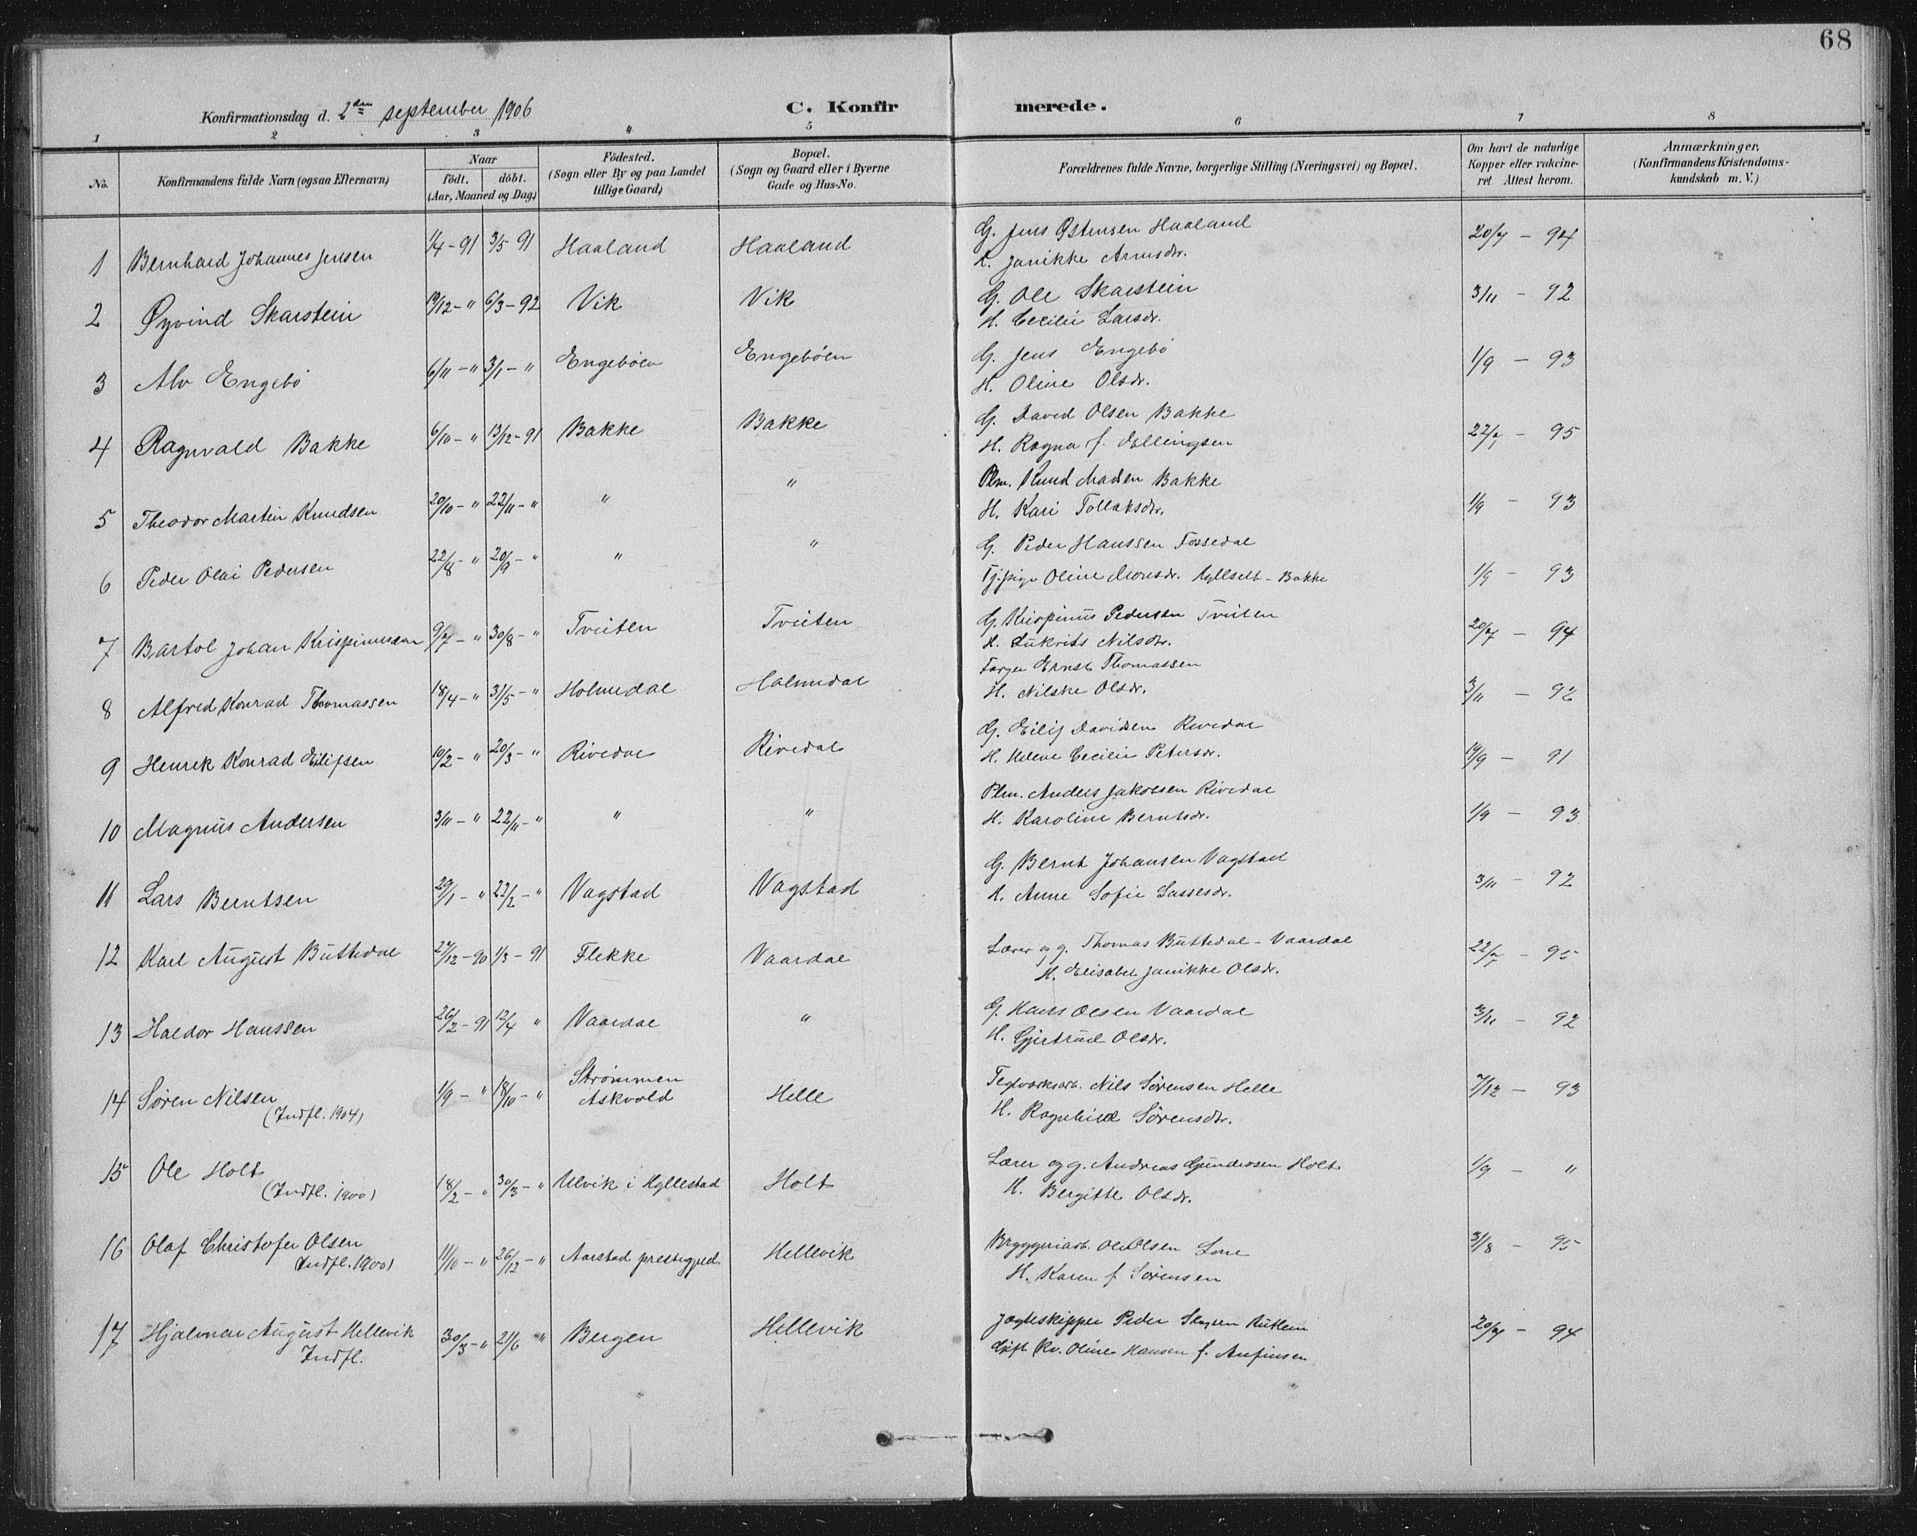 68
Konfirmationsdag d. 2den september 1906 C. Konfirmerede.
1 2 3 4 5 6 7 8
No. Konfirmandens fulde Navn (ogsaa Efternavn) Naar født. døbt. (Aar, Maaned og Dag) Fødested. (Sogn eller By og paa Landet tillige Gaard) Bopæl. (Sogn og Gaard eller i Byerne Gade og Hus-No. Forældrenes fulde Navne, borgerlige Stilling (Næringsvei) og Bopæl. Om havt de naturlige Kopper eller vakcineret Attest herom. Anmærkninger, (Konfirmandens Kristendomskundskab m. V.)
1 Bernhard Johannes Jensen 1/4-91 3/5 91 Haaland Haaland G. Jens Østensen Haaland 20/7 - 94
H. Janikke Arnesdr.
2 Øyvind Skarstein 19/12-" 6/3-92 Vik Vik G. Ole Skarstein 3/11 - 92
H. Cecilie Larsdr.
3 Alv Engebø 6/11-" 3/1-" Engebøen Engebøen G. Jens Engebø 1/9 - 93
H. Oline Olsdr.
4 Ragnvald Bakke 6/10-" 13/12-91 Bakke Bakke G. David Olsen Bakke 22/7 - 95
H. Ragna f. Ellingsen
5 Theodor Martin Knudsen 20/10-" 22/11-" " " Plm. Knud Madsen Bakke 1/9 - 93
H. Kari Tollaksdr.
6 Peder Olai Pedersen 22/8-" 20/9-" " " G. Peder Hanssen Fossedal 1/9 - 93
Tj.pige Oline Monsdr. - Bakke
7 Bartol Johan Krispinussen 9/7-" 30/8-" Tveiten Tveiten G. Krispinus Pedersen Tveiten 20/7 - 94
H. Nilsdr.
8 Alfred Konrad Thomassen 18/4-" 31/5-" Holmedal Holmedal Farger Ernst Thomassen 3/11 - 92
H. Nilske Olsdr.
9 Henrik Konrad Eilifsen 10/2-" 20/3-" Rivedal Rivedal G. Eilif Davidsen Rivedal 19/9 - 91
H. Helene Cecilie Petersdr.
10 Magnus Andersen 3/11-" 22/11-" " " Plm. Anders Jakobsen Rivedal 1/9 - 93
H. Karoline Berntsdr.
11 Lars Berntsen 29/1-" 22/2-" Vagstad Vagstad G. Bernt Johansen Vagstad 3/11 - 92
H. Anne Sofie Lassesdr.
12 Karl August Buttedal 27/12-90 1/3-91 Flekke Vaardal Lærer og g. Thomas Buttedal - Vaardal 22/7 - 95
H. Elisabet Janikke Olsdr.
13 Haldor Hanssen 26/2-91 12/4 " Vaardal " G. Hans Olsen Vaardal 3/11 - 92
H. Gjertrud Olsdr.
14 Søren Nilsen 1/9-" 18/10-" Strømmen Askvold Helle Teglværksarb. Nils Sørensen Helle 7/12 - 93
(Indfl. 1904) H. Ragnhild Sørensdr.
15 Ole Holt 18/2-" 30/3-" Ulvik i Hyllestad Holt Lærer og g. Andreas Gundersen Holt 1/9 "
(Indfl. 1900) H. Bergitte Olsdr.
16 Olaf Christofer Olsen 11/10-" 26/12-" Aarstad prestegjeld. Hellevik Bryggeriarb. Ole Olsen Lone 31/8 - 95
(Indfl. 1900) H. Karen f. Sørensen
17 Hjalmar August Hellevik 30/3-" 21/6 " Bergen Hellevik Jægteskipper Peder 20/7 - 94
Indfl. Gift kv. Oline Hansen f. Anfinsen